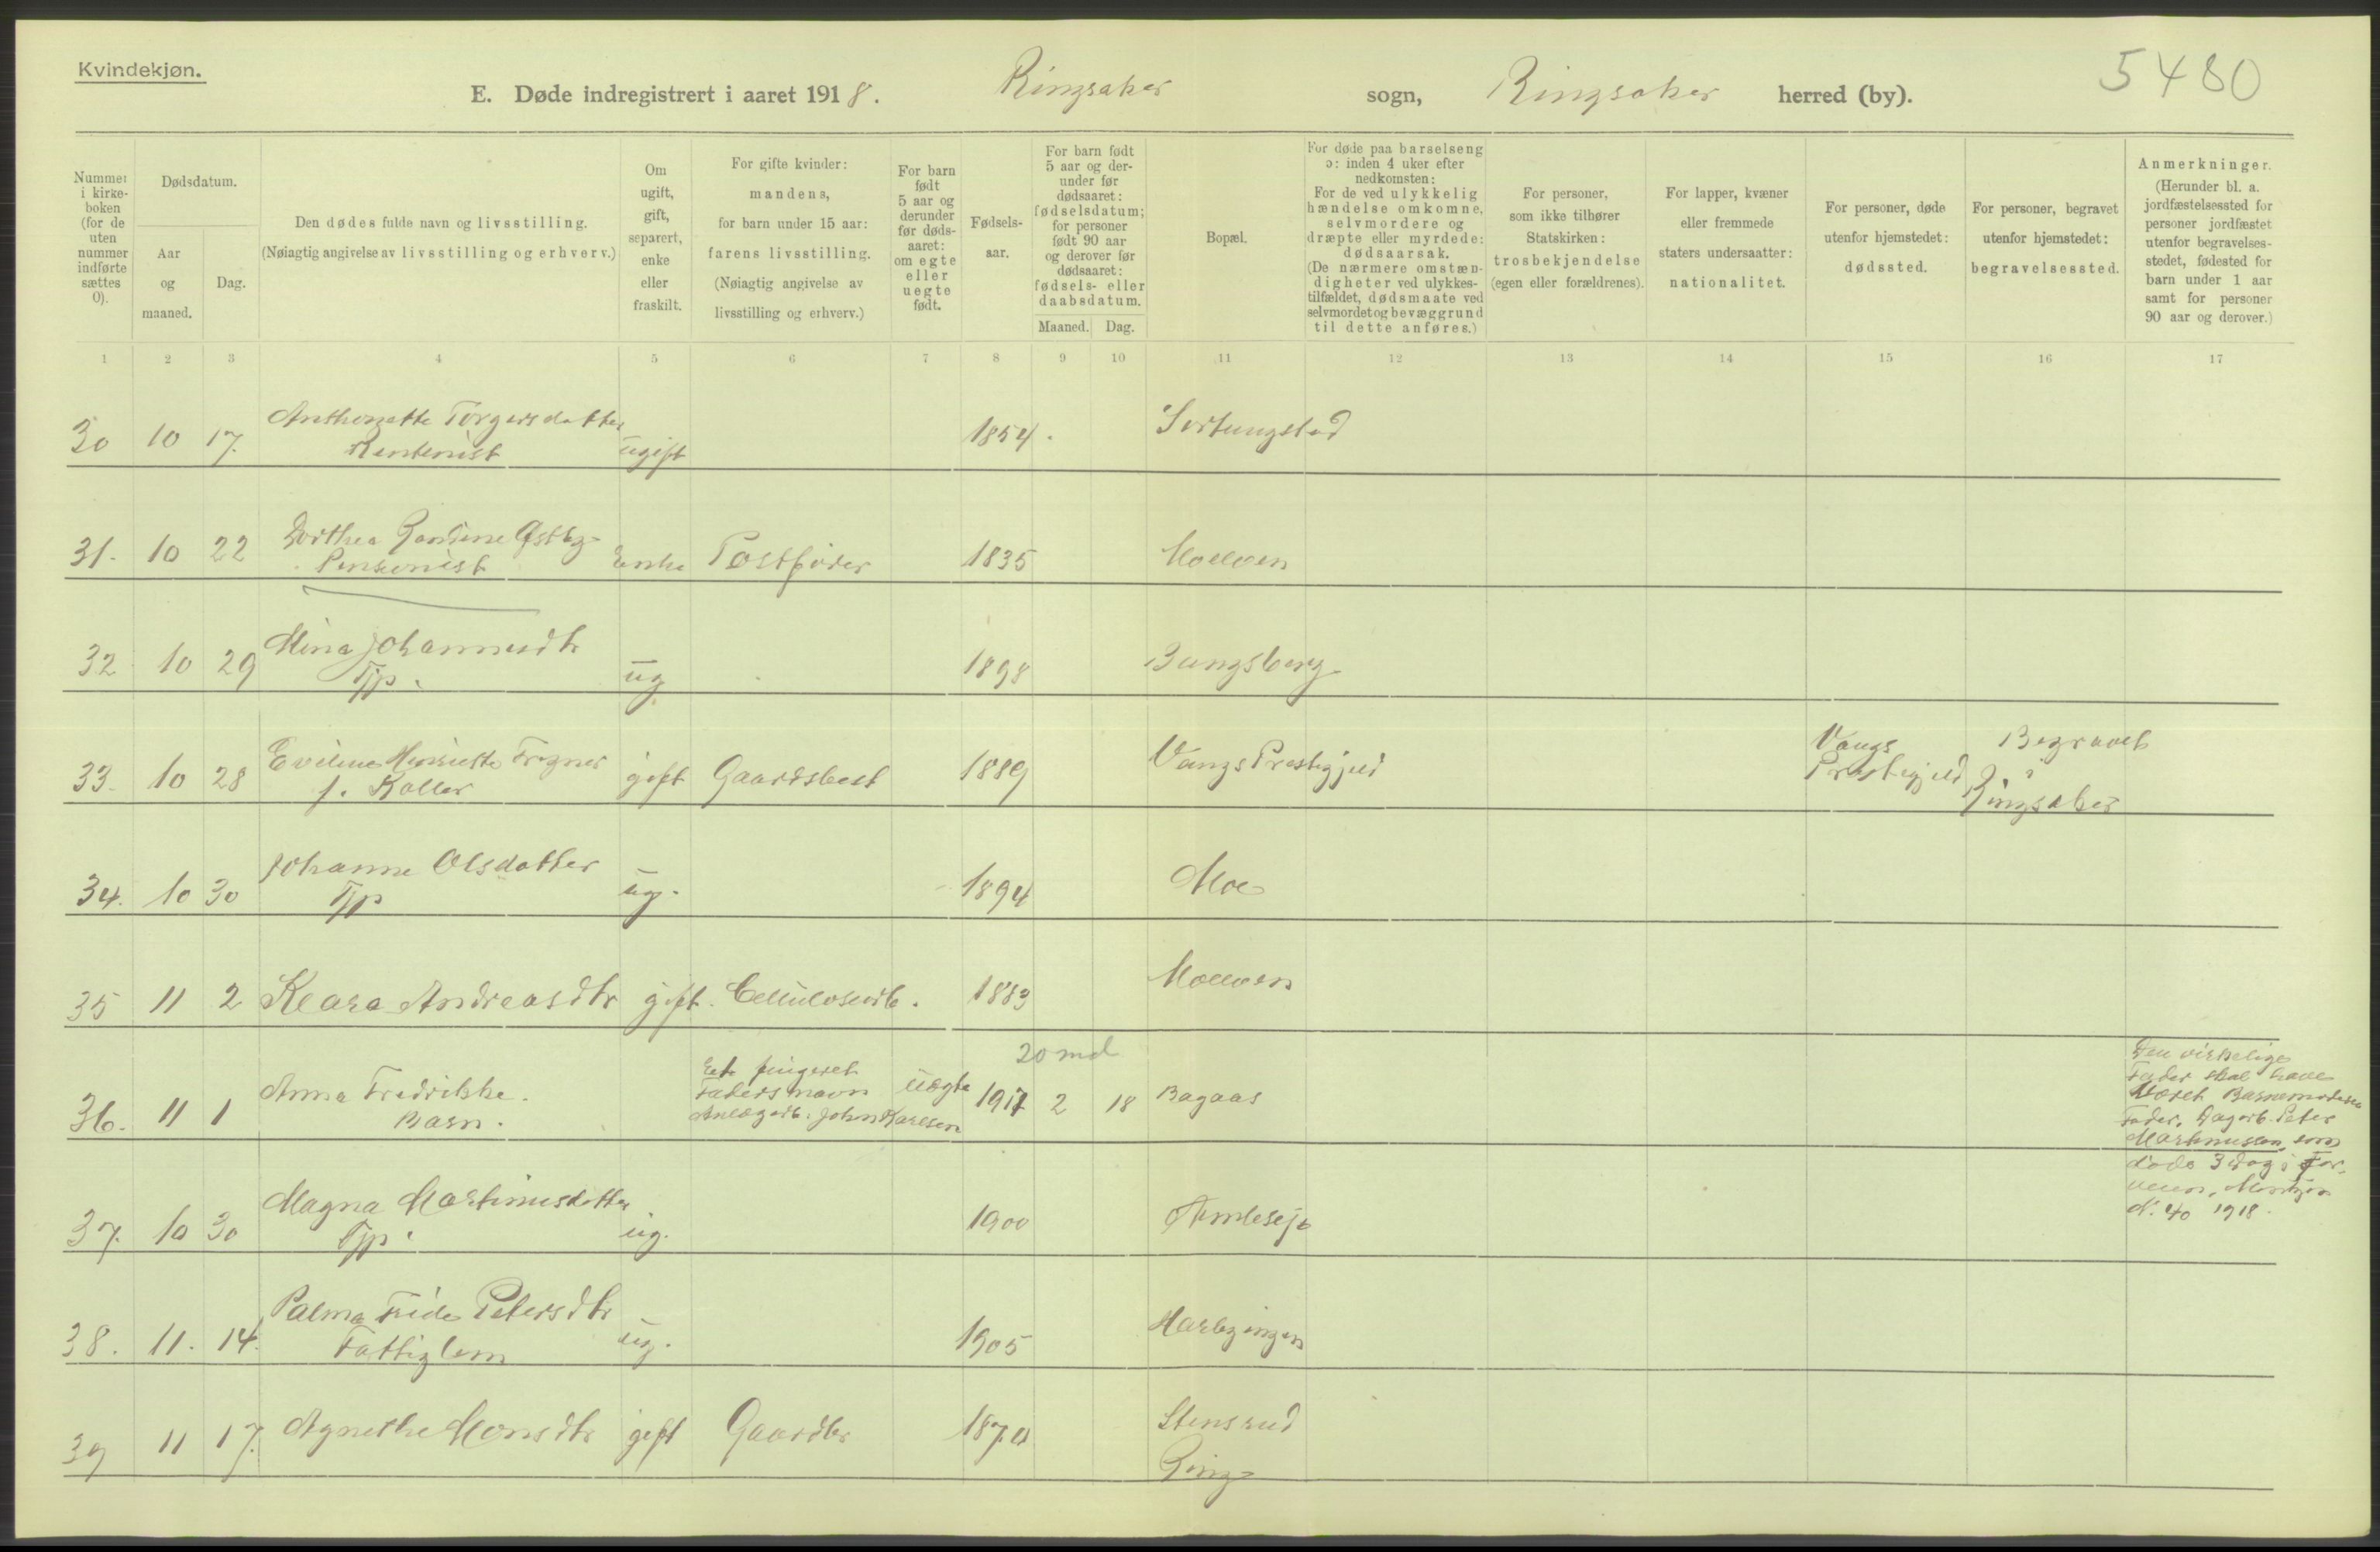 Kvindekjøn.
E. Døde indregistrert i aaret 1918. Ringsaker sogn, Ringsaker herred (by).
5480
Nummer i kirkeboken (for de uten nummer indførte sættes 0).
Dødsdatum.
Aar og maaned.
Dag.
Den dødes fulde navn og livsstilling.
(Nøiagtig angivelse av livsstilling og erhverv.)
Om ugift, gift, separert, enke eller fraskilt.
For gifte kvinder: mandens, for barn under 15 aar: farens livsstilling.
(Nøiagtig angivelse av livsstilling og erhverv.)
For barn født 5 aar og derunder før dødsaaret: om egte eller uegte født.
Fødselsaar.
For barn født 5 aar og derunder før dødsaaret: fødselsdatum; for personer født 90 aar og derover før dødsaaret: fødsels- eller daabsdatum.
Maaned. Dag.
Bopæl.
For døde paa barselseng ɔ: inden 4 uker efter nedkomsten:
For de ved ulykkelig hændelse omkomne, selvmordere og dræpte eller myrdede: dødsaarsak.
(De nærmere omstændigheter ved ulykkestilfældet, dødsmaate ved selvmordet og bevæggrund til dette anføres.)
For personer, som ikke tilhører Statskirken: trosbekjendelse (egen eller forældrenes).
For lapper, kvæner eller fremmede staters undersaatter: nationalitet.
For personer, døde utenfor hjemstedet: dødssted.
For personer, begravet utenfor hjemstedet: begravelsessted.
Anmerkninger.
(Herunder bl. a. jordfæstelsessted for personer jordfæstet utenfor begravelsesstedet, fødested for barn under 1 aar samt for personer 90 aar og derover.)
1 2 3 4 5 6 7 8 9 10 11 12 13 14 15 16 17
30 10 17. Anthonette Torgersdatter
Rentenist ugift 1854. Sortungstad
31. 10 22 Dorthea Østby
Pensionist Enke Postfører 1835 Moelven
32 10 29 Mina Johannesdtr
Tjp. ug 1898 Bungsberg
33. 10 28 Eveline Henriette Frogner
f. Koller gift Gaardsbest 1889 Vangs Prestegjeld Vangs Prestegjeld Begravet i Ringsaker
34. 10 30 Johanne Olsdatter
Tjp ug. 1894 Moe
35 11 2 Klara Andreasdtr gift. Cellulosearb. 1883 Moelven
20 md
36. 11 1 Anna Fredrikke.
Barn. Et fingeret Fadersnavn Anlægarb. John Karlsen uægte 1917 2 18 Bagaas
Den virkelige
Fader skal have
Været Barnemoderens
Fader, Dagarb. Peter
Martinussen som
døde 3 dag i For-
veien,
N. 40 1918.
37. 10 30 Magna Martinusdatter
Tjp. ug. 1900
38. 11. 14. Palma Frida Petersdtr
Fattiglem ug. 1905
39 11 17. Agnethe Monsdtr gift Gaardbr 1870 Stensrud
Ring